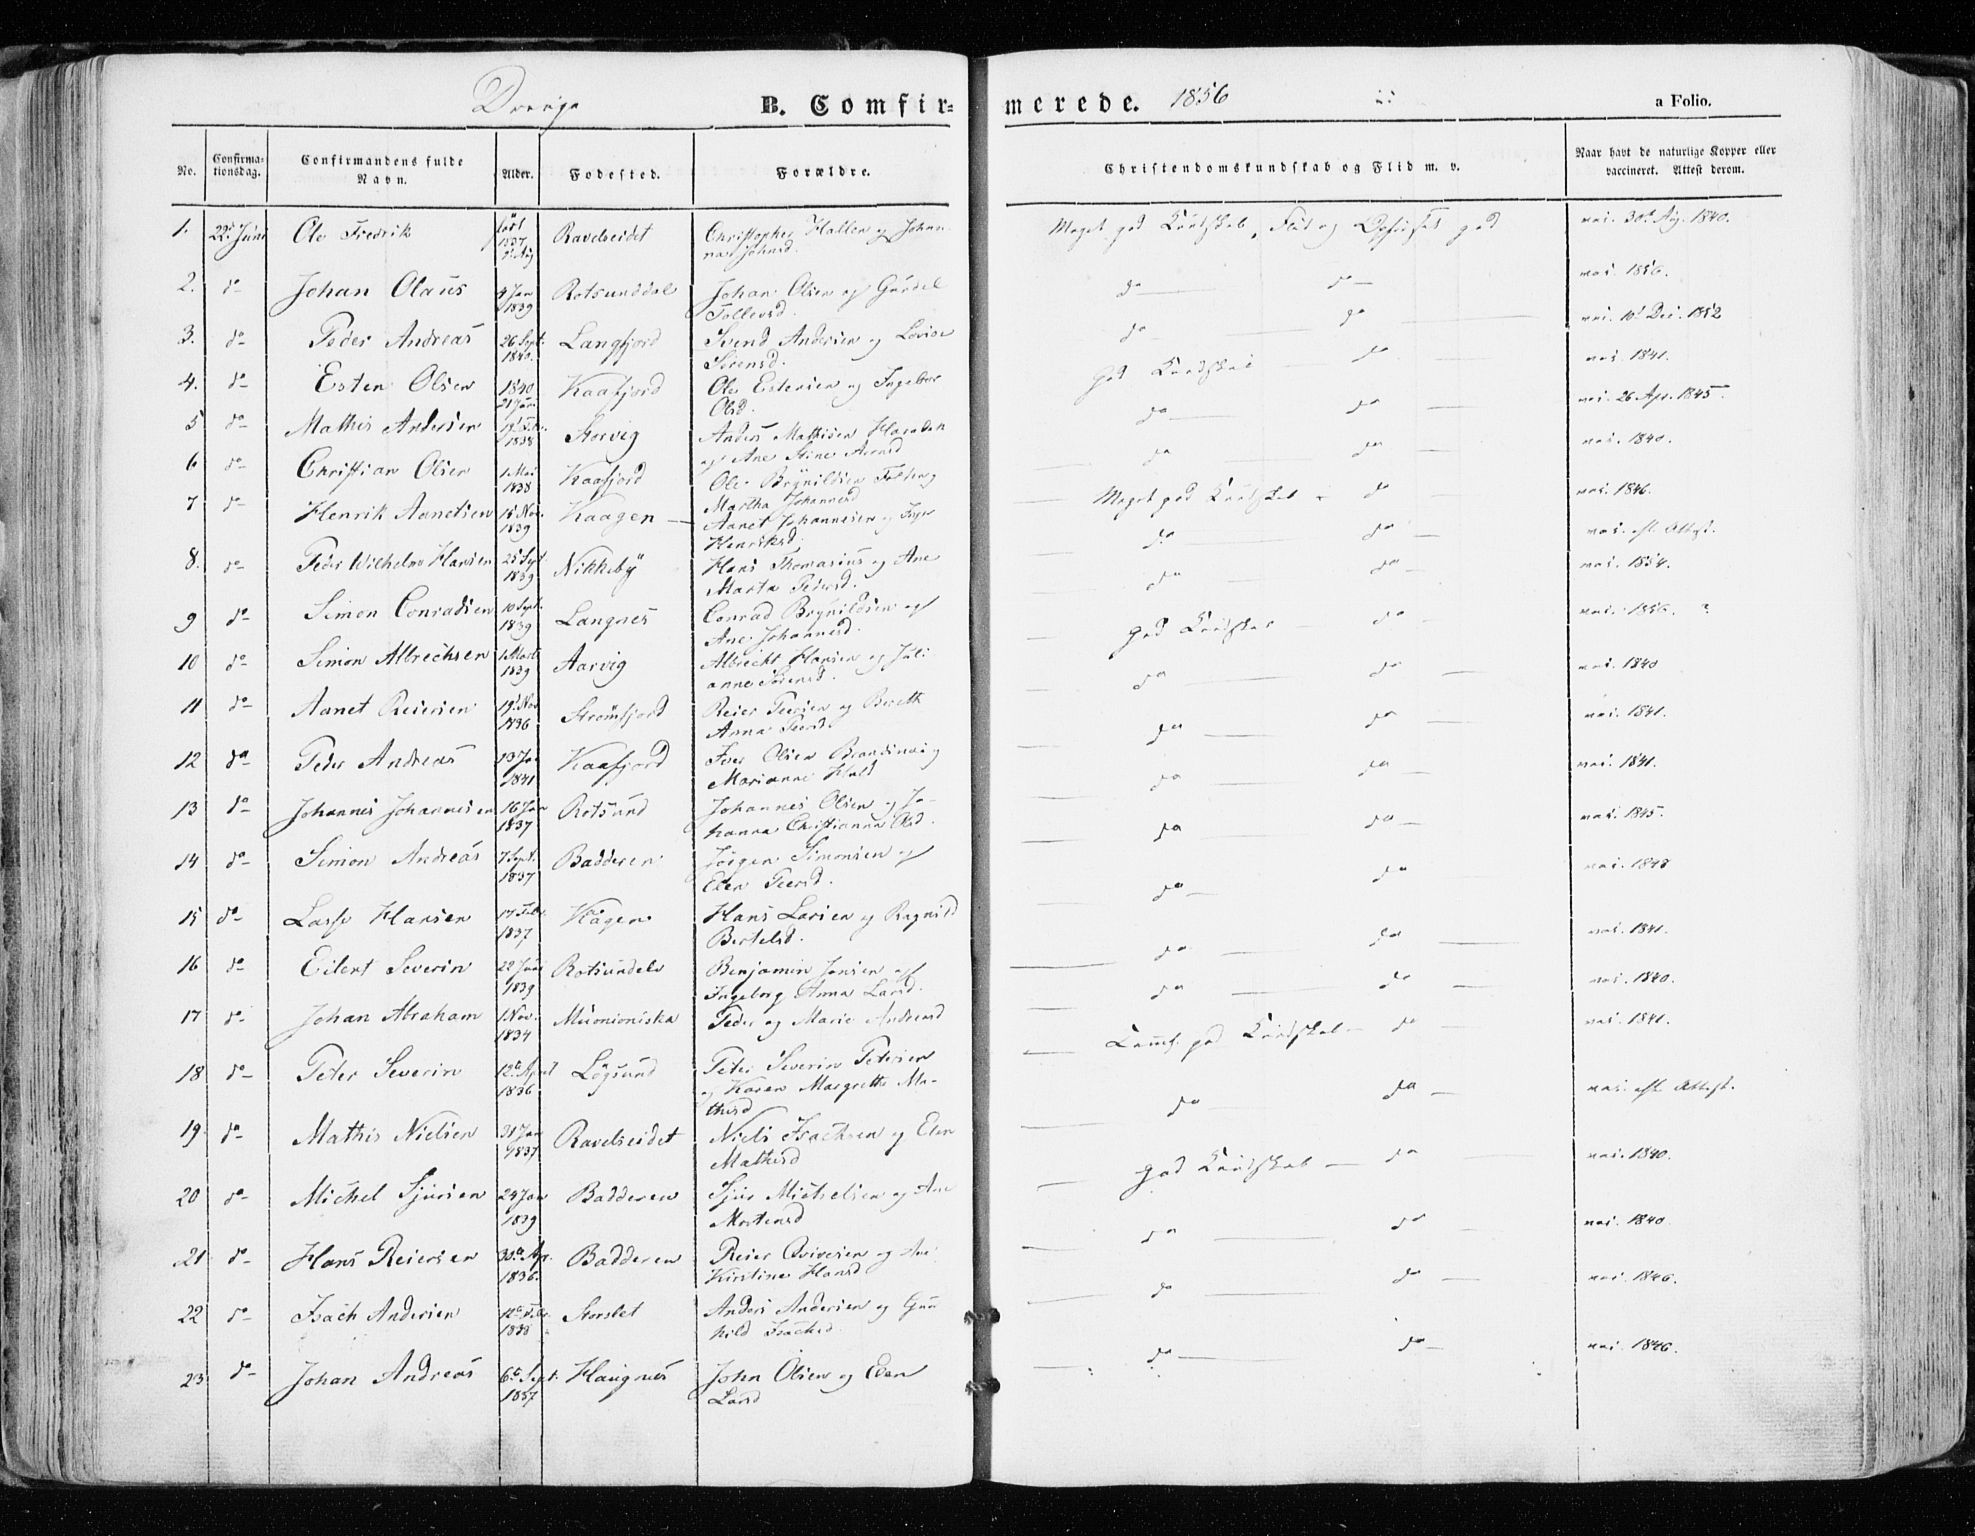 Drenge B. Comfirmerede. 1856 a Folio.
No. Confirmationsdag. Confirmandens fulde Navn. Alder. Fodested. Forældre. Christendomskundskab og Flid m. v. Naar havt de naturlige Kopper eller vaccineret. Attest derom.
1. 22d Juni Ole Fredrik født 1837 Ravelseidet Christopher Hallen og Johanna Johnsd. Meget god Kundskab, Flid og Opførsel god vac. 30d Aug. 1840.
2. do Johan Olaus 4 Jan 1839 Rotsunddal Johan Olsen og Gurdel Tollevsd. do do vac. 1856.
3. do Peder Andreas 26 Sept. 1840. Langfjord Svend Andersen og Lovise Sørensd. do do vac. 10d Dec. 1852
4. do Esten Olsen 1840 21 Jan. Kaafjord Ole Estensen og Ingebor Olsd. God Kundskab do vac. 1841.
5 do Mathis Andersen 19d Febr. 1838 Storvig Anders Mathisen Haradak og Ane Stine Arnsd do do vac. 26 Apr. 1845.
6 do Christian Olsen 1 Mai 1838 Kaafjord Ole Brynildsen og Martha Johannesd do do vac. 1840.
7 do Henrik Aanetsen 15 Nov. 1839 Kaagen Aanet Johannesen og Henriksd. Meget god Kundskab do vac. 1846.
8. do Peder Wilhelm Hansen 25 Sept. 1839 Nikkeby Hans Thomasius og Ane Marta Pedersd. do do vac. efl. Attest.
9 do Simon Conradsen 10 Sept. 1839 Langnes Conrad Brynildsen og Ane Johannesd. do do vac. 1854.
10 do Simon Albrechsen 1 Marts 1839 Aarvig Albrecht Hansen og Julianne Sørensd. God Kundskab do vac. 1856. ?
11 do Aanet Reiersen 19d Nov 1836 Strømfjord Reier Peersen og Bereth Anna Peersd. do do vac. 1840
12 do Peder Andreas 23 Jan 1841 Kaafjord Iver Olsen og Marianne Hald do do vac. 1841.
13 do Johannes Johannesen 16 Jan 1837 Rotsund Johannes Olsen og Johanna Christianna Olsd. do do vac. 1841.
14 do Simon Andreas 7 Sept. 1837 Badderen Jørgen Simonsen og Elen Peersd. do do vac. 1845.
15 do Lasse Hansen 17 Febr. 1837 Kågen Hans Larsen og Ragnild Bertelsd. do do vac. 1840
16 do Eilert Severin 22 Juni 1839 Rotsundelv Benjamin Jonsen og Ingeborg Anna Larsd. do do vac. 1841.
17 do Johan Abraham 1 Nov. 1834 Muonioniska Peder og Marie Andreasd do do vac. 1840.
18 do Peter Severin 12te April 1836. Løgsund Peter Severin Petersen og Karen Margrethe Mathisd god Kundskab do vac. 1841.
19 do Mathis Nielsen 31 Jan 1837 Ravelseidet Niels Isachsen og Elen Mathisd do do vac. efl. Attest.
20 do Michel Sjursen 24 Jan 1839 Badderen Sjur Michelsen og Ane Mortensd God Kundskab do vac. 1840.
21 do Hans Reiersen 30te Ap. 1836. Badderen Reier Qvivesen og Ane Kirstine Hansd do do vac. 1840
22 do Isach Andersen 12te Febr. 1838 Storslet Anders Andersen og Gunhild Isachsd. do do vac. 1846.
23 do Johan Andreas 6te Sept. 1837 Haugnes John Olsen og Elen Larsd do do vac. 1846.